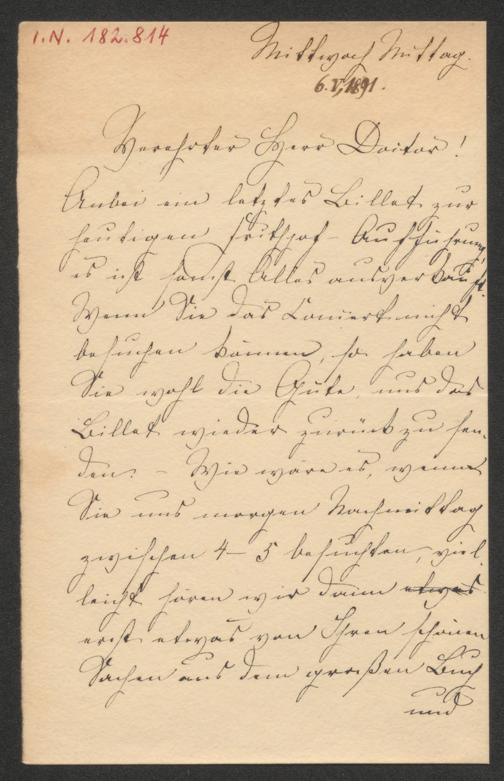 I.N. 182.814
Mittwoch Mittag.
6.V.1891.
Verehrter Herr Doctor!
Anbei ein letztes Billet zur
heutigen Frithjof-Aufführung,
es ist sonst Alles ausverkauft.
Wenn Sie das Concert nicht
besuchen können, so haben
Sie wohl die Güte, uns das
Billet wieder zurück zu sen-
den. – Wie wäre es, wenn
Sie uns morgen Nachmittag
zwischen 4–5 besuchten, viel-
leicht hören wir dann etwas
erst etwas von Ihren schönen
Sachen aus dem großen Buch
und